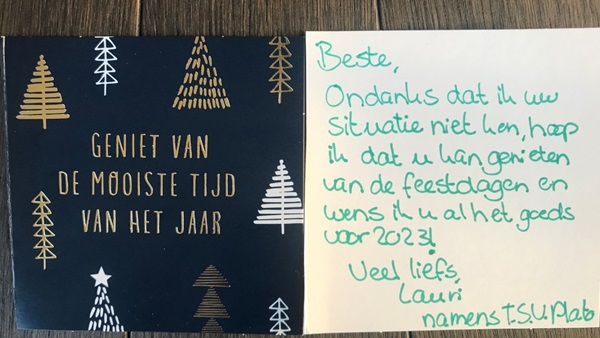 GENIET VAN
DE MOOISTE TIJD
VAN HET JAAR
Beste,
Ondanks dat ik uw
situatie niet ken, hoop
ik dat u kan genieten
van de feestdagen en
wens ik u al het goeds
voor 2023!
Veel liefs,
Lauri
namens T.S.V. Plato